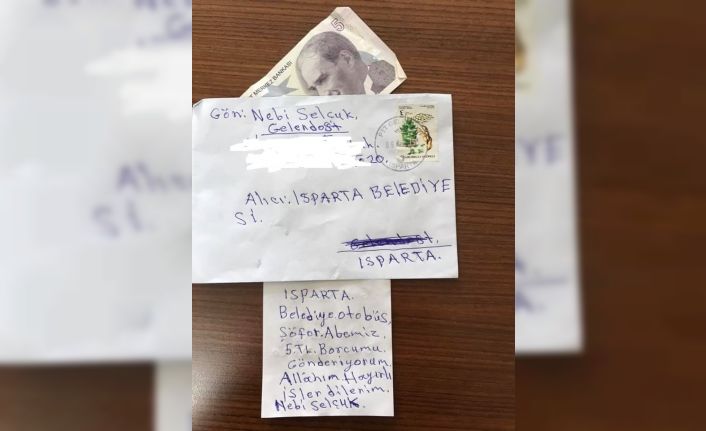 5
MERKEZ BANKASI
Gön: Nebi Selçuk,
Gelendost
h.
20.
Alıcı. ISPARTA BELEDİYE
Sİ.
ISPARTA.
ISPARTA.
Belediye.otobüs,
Şöför.Abemiz.
5.TL.Borcumu.
Gönderiyorum
Allahım Hayırlı
işler dilerim.
Nebi Selçuk.